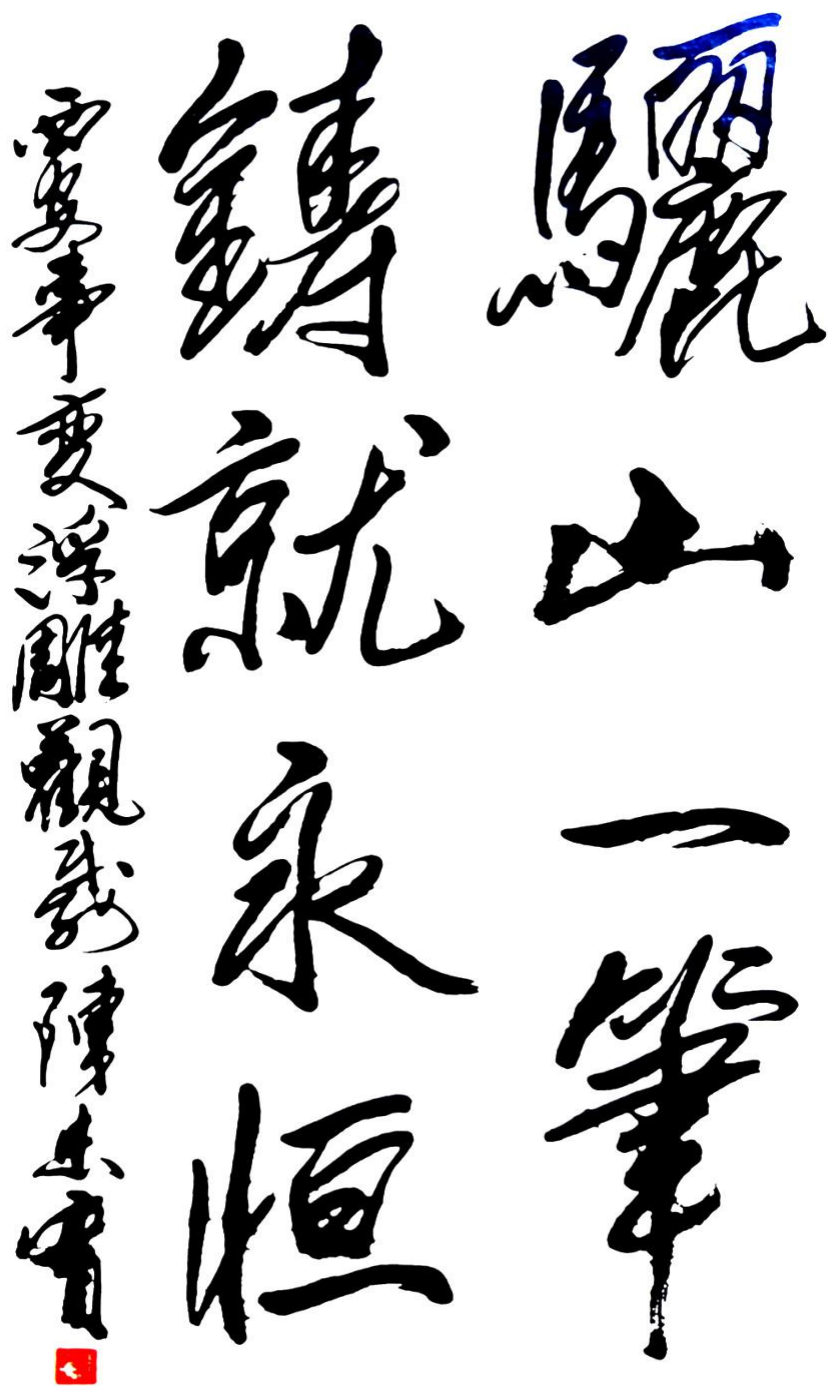 驪山一筆
鑄就永恒
西安事變浮雕觀感 陳忠實